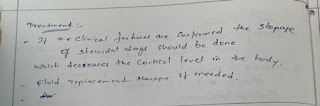 Treatment :-
- If the clinical features are confirmed the stopage
of steroidal drugs should be done
which decreases the cortisol level in the body.
- Fluid replacement therapy if needed.
-